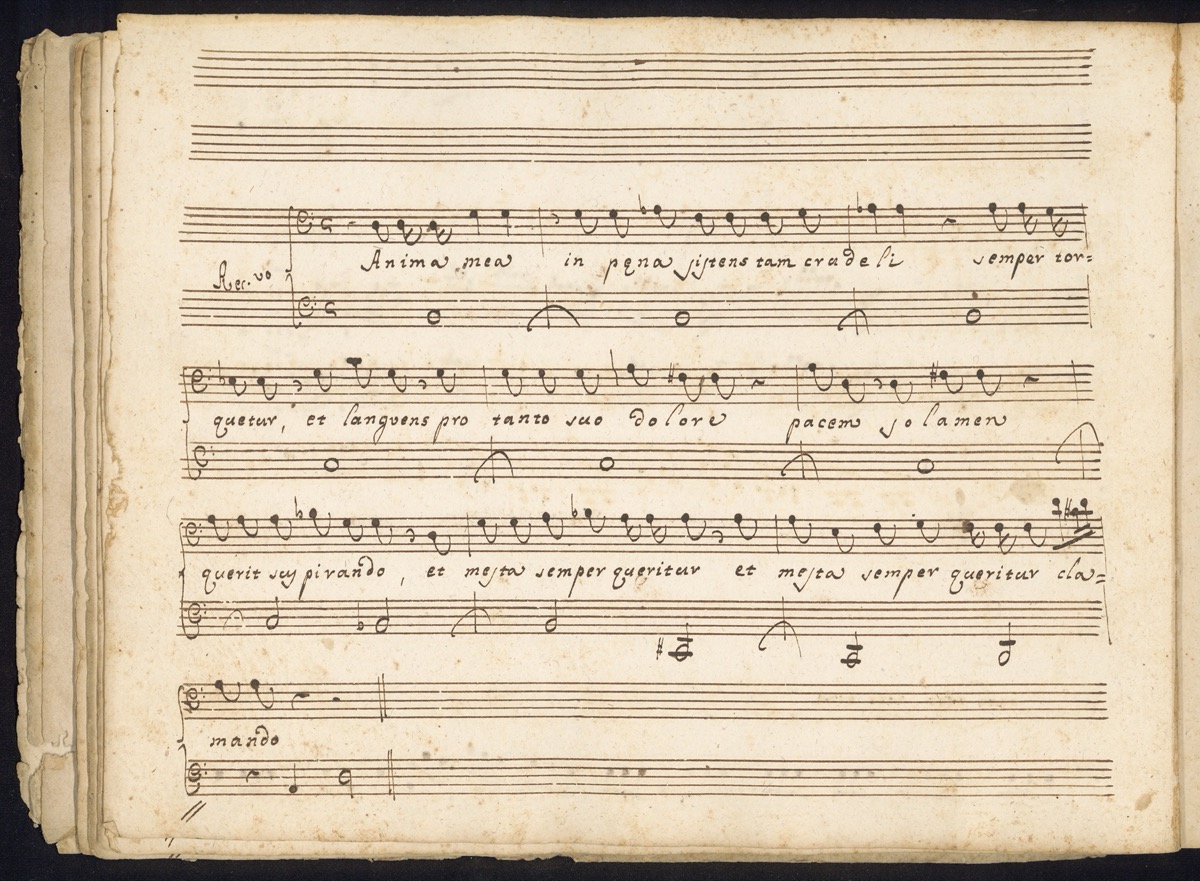 Anima mea in pęna sistens tam crudeli semper tor=
Rec.vo
quetur, et langvens pro tanto suo dolore pacem solamen
querit suspirando, et mesta semper queritur et mesta semper queritur cla=
mando